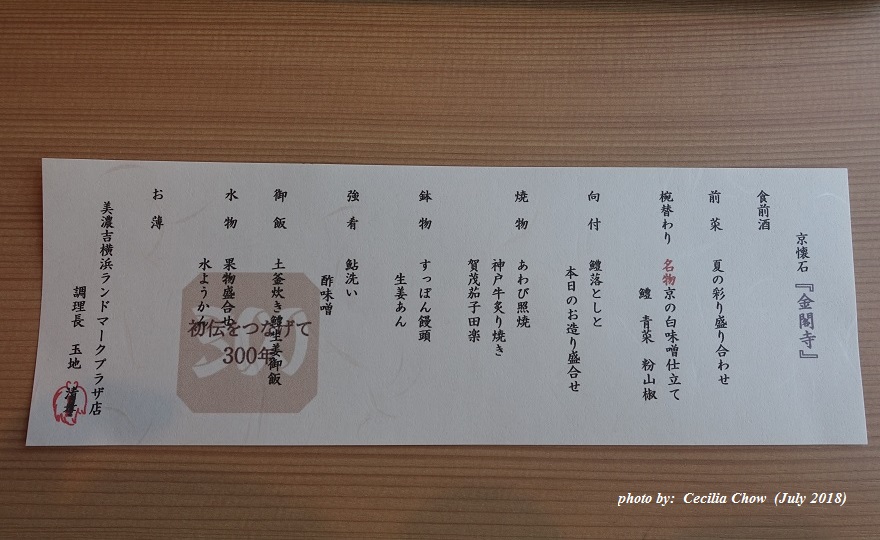 京懐石 『金閣寺』
食前酒
前菜 夏の彩り盛り合わせ
椀替わり 名物京の白味噌仕立て
鱧 青菜 粉山椒
向付 鱧落としと
本日のお造り盛合せ
焼物 あわび照焼
神戸牛炙り焼き
賀茂茄子田楽
鉢物 すっぽん饅頭
生姜あん
強肴 鮎洗い
酢味噌
御飯 土釜炊き鱧生姜御飯
水物 果物盛合せ
水ようかん
お薄
美濃吉横浜ランドマークプラザ店
調理長 玉地
300
初伝をつなげて
300年
photo by: Cecilia Chow (July 2018)